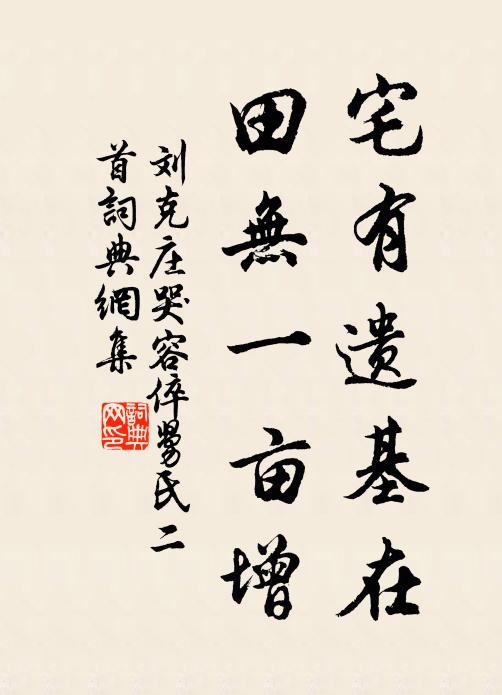 宅有遗基在
田無一亩增
刘克庄哭容倅舅氏二
首詞典網集
詞典
网印